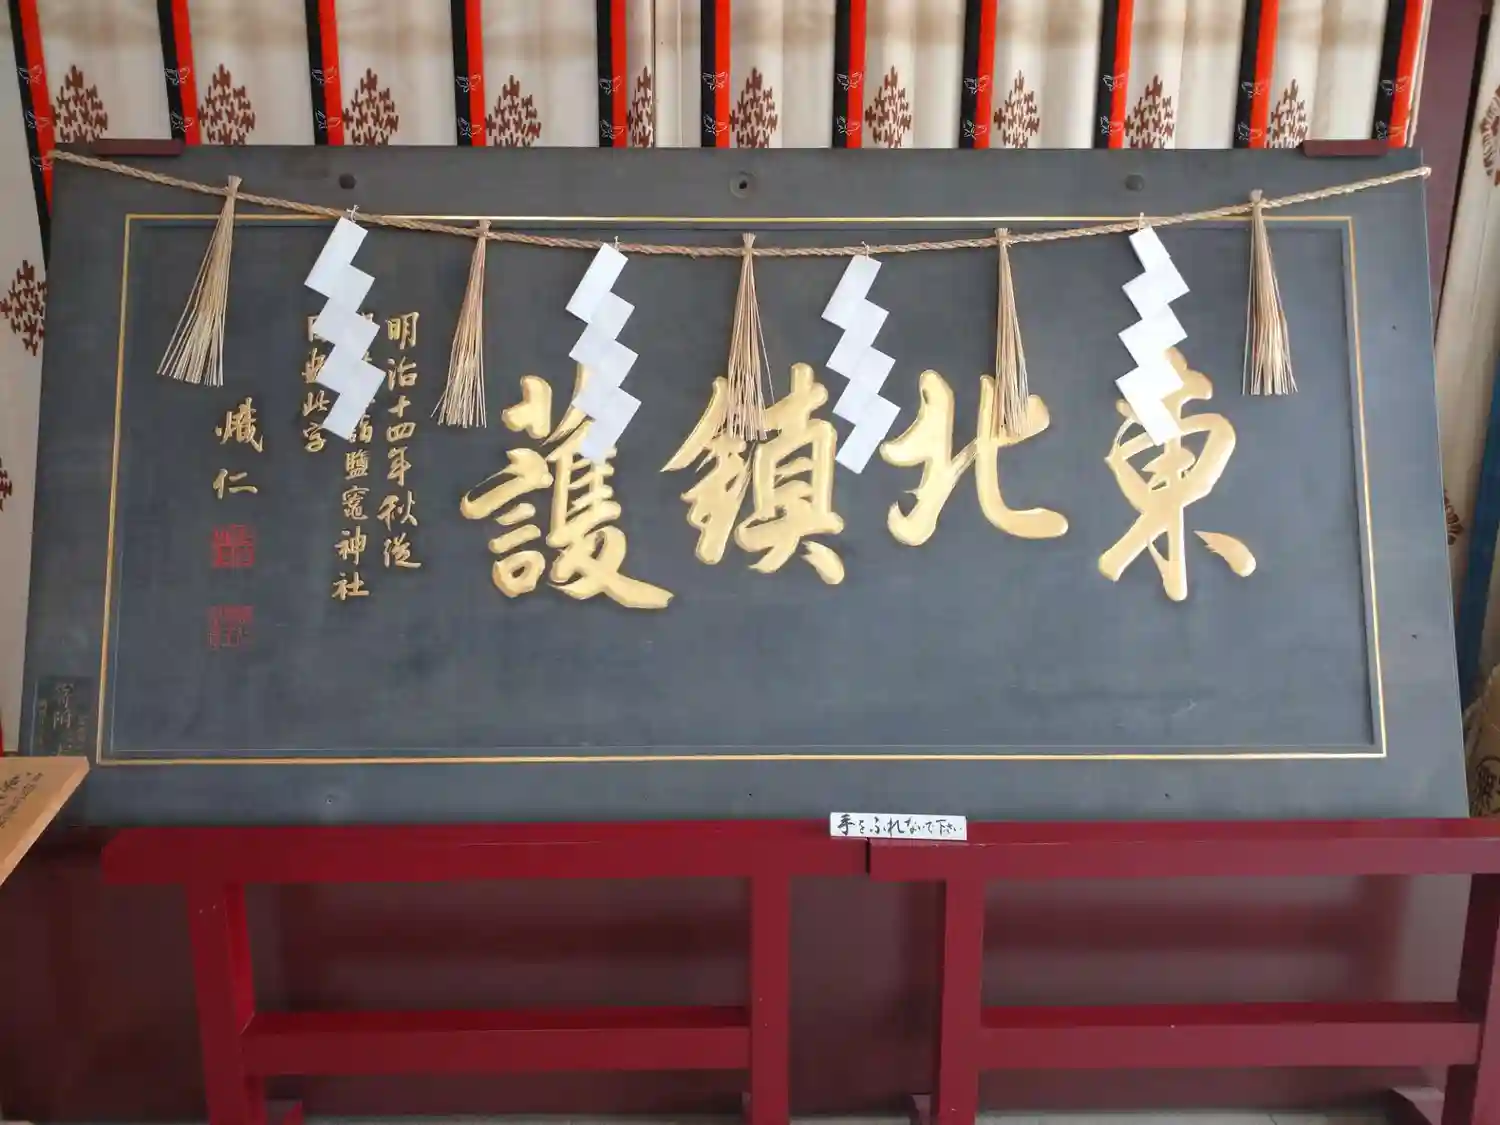 東北鎮護
明治十四年秋從
詣鹽竈神社
此字
熾仁
手をふれないで下さい
寄附